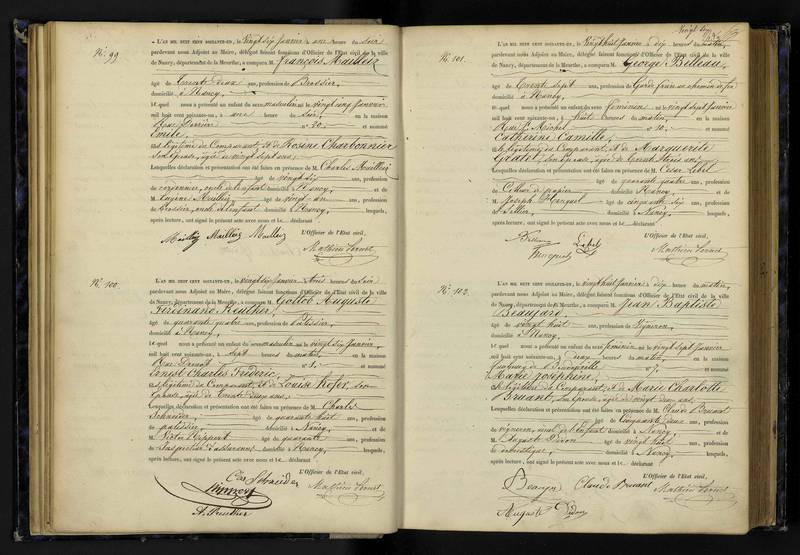 N°. 99.
L'AN MIL HUIT CENT SOIXANTE-UN, le vingt six Janvier à une heure du soir
pardevant nous Adjoint au Maire, délégué faisant fonctions d'Officier de l'Etat civil de la ville
de Nancy, département de la Meurthe, a comparu M. François Mailliez
âgé de trente deux ans, profession de Brossier,
domicilié à Nancy,
lequel nous a présenté un enfant du sexe masculin né le vingt cinq Janvier
mil huit cent soixante-un, à une heure du soir, en la maison
Rue Derrière n° 30, et nommé
Emile,
fils légitime du Comparant, et de Rosine Charbonnier
son Epouse, âgée de vingt sept ans;
Lesquelles déclaration et présentation ont été faites en présence de M. Charles Mailliez
âgé de vingt six ans, profession
de cordonnier, oncle de l'enfant domicilié à Nancy, et de
M. Eugène Mailliez âgé de vingt-un ans, profession
de Brossier, oncle de l'enfant domicilié à Nancy, lesquels,
après lecture, ont signé le présent acte avec nous et le déclarant
L'Officier de l'Etat civil,
Mailliez Mailliez Mailliez
N°. 100.
L'AN MIL HUIT CENT SOIXANTE-UN, le vingt six Janvier à trois heures du soir
pardevant nous Adjoint au Maire, délégué faisant fonctions d'Officier de l'Etat civil de la ville
de Nancy, département de la Meurthe, a comparu M. Gottlob Auguste
Ferdinand Reuther,
âgé de quarante quatre ans, profession de Pâtissier,
domicilié à Nancy,
lequel nous a présenté un enfant du sexe masculin né le vingt six Janvier,
mil huit cent soixante-un, à sept heures du matin, en la maison
et nommé
Ernest Charles Frédéric,
fils légitime du Comparant, et de Louise Hofer, son
Epouse, âgée de trente deux ans;
Lesquelles déclaration et présentation ont été faites en présence de M. Charles
Schneider, âgé de quarante huit ans, profession
de patissier, domicilié à Nancy, et de
M. Victor âgé de quarante ans, profession
domicilié à Nancy, lesquels,
après lecture, ont signé le présent acte avec nous et le déclarant
L'Officier de l'Etat civil,
Schneider
A. Reuther
N°. 101.
L'AN MIL HUIT CENT SOIXANTE-UN, le vingt huit Janvier à dix heures du matin,
pardevant nous Adjoint au Maire, délégué faisant fonctions d'Officier de l'Etat civil de la ville
de Nancy, département de la Meurthe, a comparu M. George Billeau,
âgé de trente sept ans, profession de Garde frein au chemin de fer
domicilié à Nancy,
lequel nous a présenté un enfant du sexe féminin né le vingt sept Janvier
mil huit cent soixante-un, à huit heures du matin, en la maison
Rue St. Michel n° 10, et nommé
Catherine Camille,
fille légitime du Comparant, et de Marguerite
son Epouse, âgée de trente trois ans;
Lesquelles déclaration et présentation ont été faites en présence de M. César Lebel
âgé de quarante quatre ans, profession
de Colleur de papier domicilié à Nancy, et de
M. Joseph âgé de cinquante six ans, profession
de Sellier, domicilié à Nancy, lesquels,
après lecture, ont signé le présent acte avec nous et le déclarant
L'Officier de l'Etat civil,
Lebel
N°. 102.
L'AN MIL HUIT CENT SOIXANTE-UN, le vingt huit Janvier à dix heures du matin,
pardevant nous Adjoint au Maire, délégué faisant fonctions d'Officier de l'Etat civil de la ville
de Nancy, département de la Meurthe, a comparu M. Jean Baptiste
Beaujard,
âgé de vingt huit ans, profession de Vigneron,
domicilié à Nancy,
lequel nous a présenté un enfant du sexe féminin né le vingt sept Janvier
mil huit cent soixante-un, à deux heures du matin, en la maison
et nommé
Marie Joséphine,
fille légitime du Comparant, et de Marie Charlotte
Bruant, son Epouse, âgée de vingt deux ans;
Lesquelles déclaration et présentation ont été faites en présence de M. Claude Bruant
âgé de cinquante deux ans, profession
de vigneron, aïeul de l'enfant domicilié à Nancy, et de
M. Auguste Didon âgé de vingt huit ans, profession
domicilié à Nancy, lesquels,
après lecture, ont signé le présent acte avec nous et le déclarant
L'Officier de l'Etat civil,
Claude Bruant
Auguste Didon